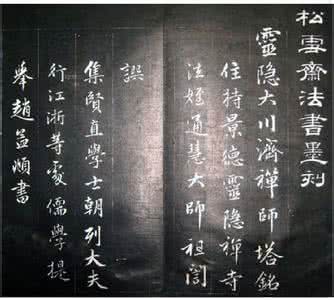 松雪齋法書墨刻
靈隐大川濟禪師塔銘
住持景德靈隐禪寺
法姪通慧大師祖誾
譔
集賢直學士朝列大夫
行江浙等處儒學提
舉趙孟頫書